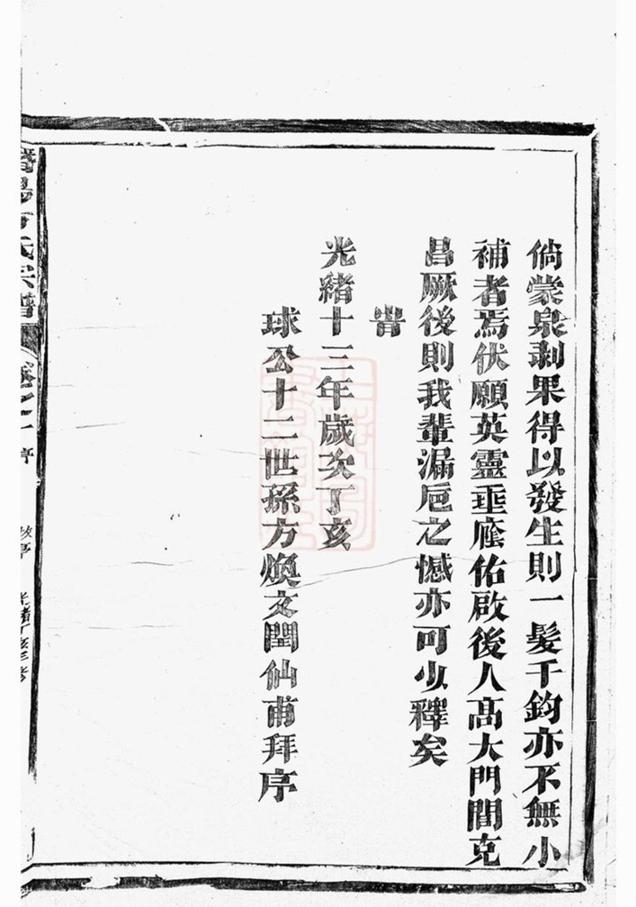 倘蒙泉剥果得以發生則一髪千鈞亦不無小
補者焉伏願英靈垂廕佑啟後人高大門閭克
昌厥後則我輩漏卮之憾亦可少釋矣
旹
光緒十三年歲次丁亥
球公十二世孫方煥文閏仙甫拜序
方氏宗譜
卷之一 序